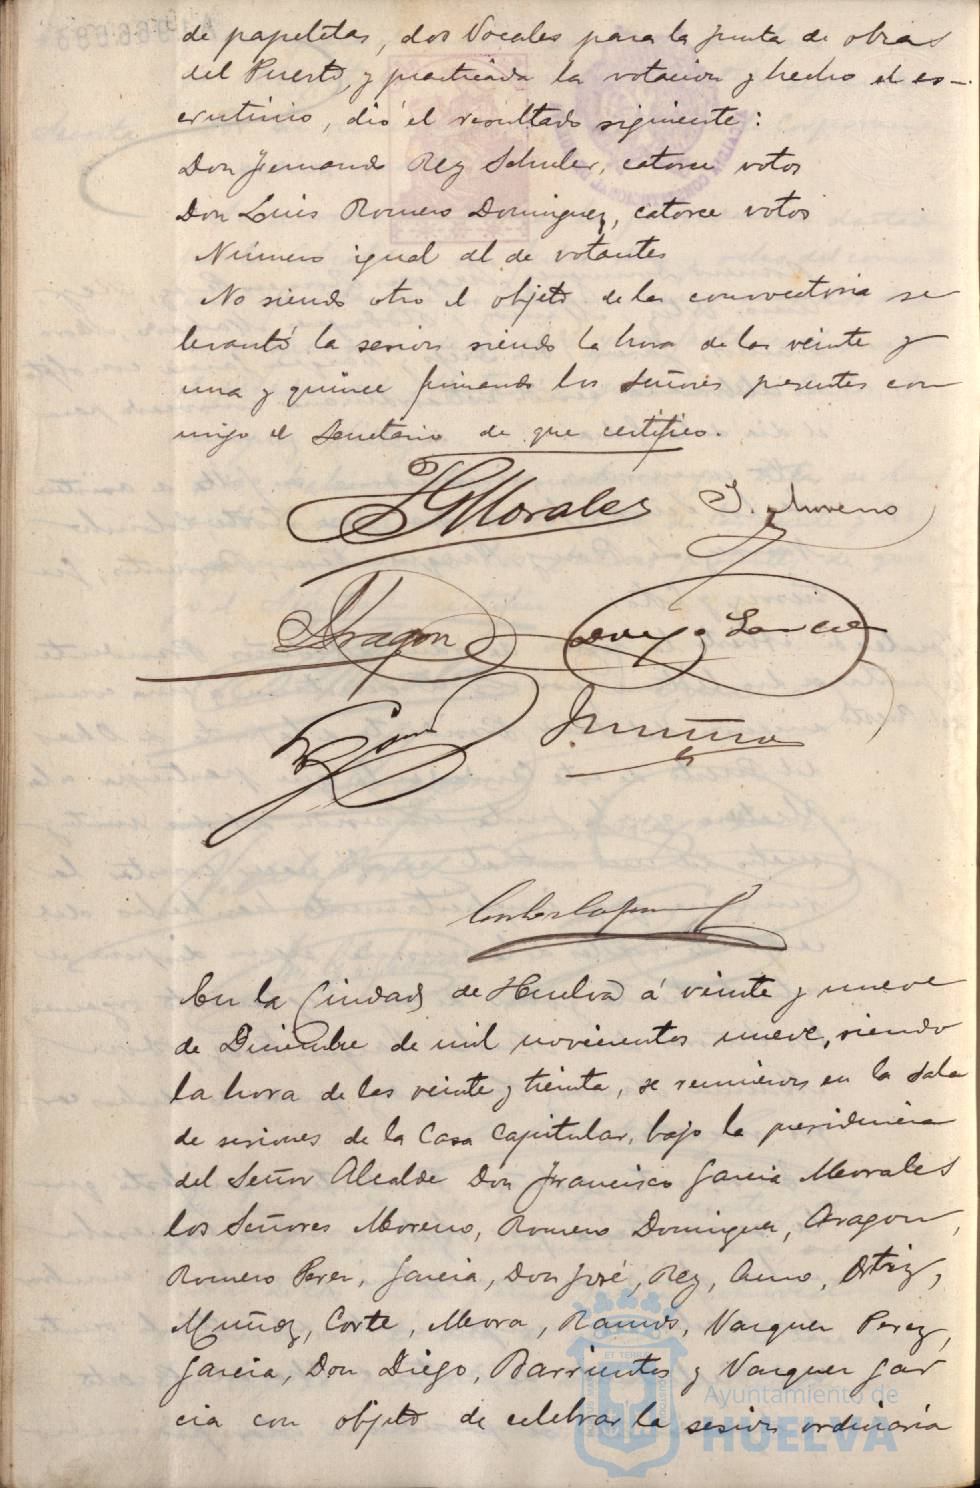 de papeletas, dos Vocales para la Junta de obras
del Puerto, y practicada la votacion y hecho el es-
crutinio, dió el resultado siguiente:
Don Fernando Rey Schuler, catorce votos
Don Luis Romero Dominguez, catorce votos
Número igual al de votantes
No siendo otro el objeto de la convocatoria se
levantó la sesion siendo la hora de las veinte y
una y quince firmando los Señores presentes con
migo el Secretario de que certifico.
FGMorales J. Moreno
Aragon Diego Garcia
Muñoz
En la Ciudad de Huelva á veinte y nueve
de Diciembre de mil novecientos nueve, siendo
la hora de las veinte y treinta, se reunieron en la Sala
de sesiones de la Casa Capitular, bajo la presidencia
del Señor Alcalde Don Francisco Garcia Morales
los Señores Moreno, Romero Dominguez, Aragon,
Romero Perez, Garcia, Don José, Rey, Ortiz,
Muñoz, Corte, Mora, Ramos, Vazquez Perez,
Garcia, Don Diego, Barrientos y Vazquez Gar
cia con objeto de celebrar la sesion ordinaria
Ayuntamiento de
HUELVA